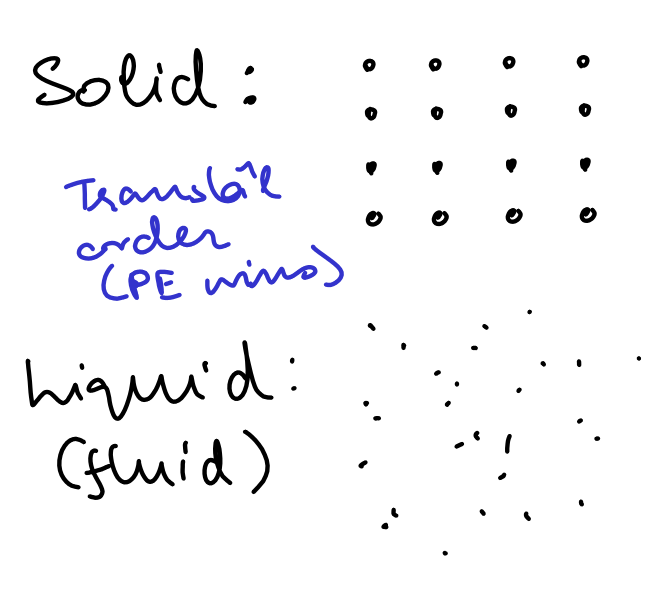 Solid :
Translal
order
(PE wins)
Liquid :
(fluid)